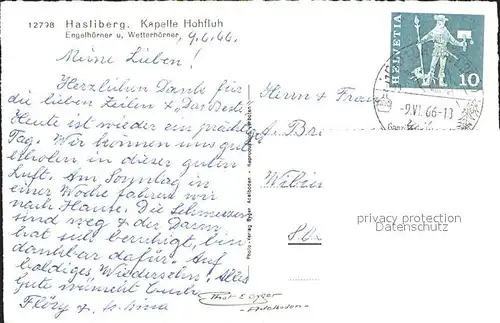 12798 Hasliberg. Kapelle Hohfluh
Engelhörner u. Wetterhörner
9.6.66.
Meine Lieben!
Herzlichen Dank für
die lieben Zeilen &
Heute ist wieder ein prächtiger
Tag. Wir können uns gut
erholen in dieser guten
Luft. Am Sonntag in
einer Woche fahren wir
nach Hause. Die Schmerzen
sind weg & der Darm
hat sich beruhigt, bin
dankbar dafür. Auf
baldiges Wiedersehn! Alles
Gute wünscht Euch
Flöry &
Photo-Verlag Gyger Adelboden
Phot E Gyger
-Adelboden-
Herrn & Frau
HELVETIA
10
-9.VI.66-13
privacy protection
Datenschutz